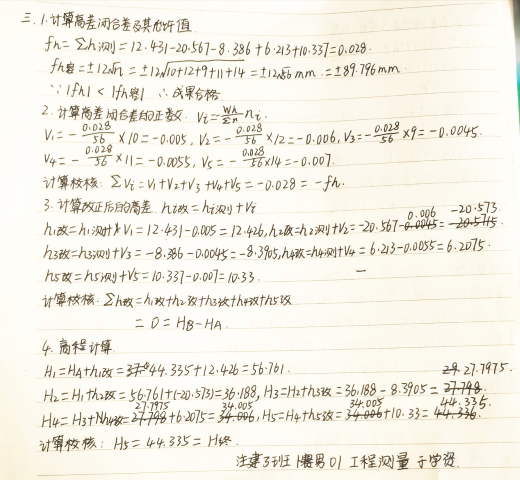 三.1.计算高差闭合差及其允许值
fh=Σh测=12.431-20.567-8.386+6.213+10.337=0.028.
fh容=±12√n=±12√10+12+9+11+14=±12√56mm=±89.796mm.
∵|fh|<|fh容| ∴成果合格
2.计算高差闭合差的改正数. Vi=Wh/Σn ni.
V1=-0.028/56×10=-0.005, V2=-0.028/56×12=-0.006, V3=-0.028/56×9=-0.0045.
V4=-0.028/56×11=-0.0055, V5=-0.028/56×14=-0.007.
计算校核: ΣVi=V1+V2+V3+V4+V5=-0.028=-fh.
3.计算改正后的高差. hi改=hi测+Vi
h1改=h1测+V1=12.431-0.005=12.426, h2改=h2测+V2=-20.567-0.006=-20.573
h3改=h3测+V3=-8.386-0.0045=-8.3905, h4改=h4测+V4=6.213-0.0055=6.2075.
h5改=h5测+V5=10.337-0.007=10.33.
计算校核: Σh改=h1改+h2改+h3改+h4改+h5改
=0=HB-HA.
4.高程计算.
H1=HA+h1改=44.335+12.426=56.761.
H2=H1+h2改=56.761+(-20.573)=36.188, H3=H2+h3改=36.188-8.3905=27.7975.
H4=H3+h4改=27.7975+6.2075=34.005, H5=H4+h5改=34.005+10.33=44.335.
计算校核: H5=44.335=H终.
3班 男01 工程测量 于学资